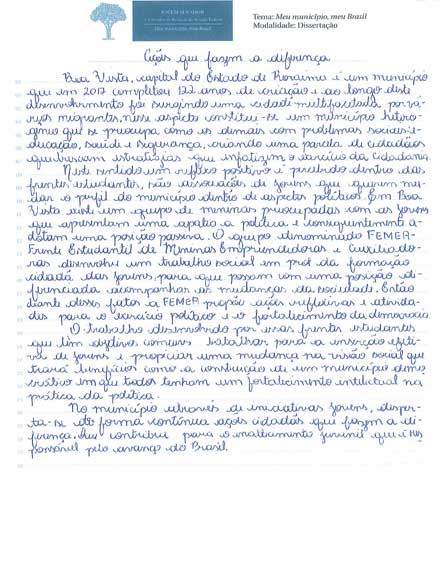 JOVEM SENADOR
Tema: Meu município, meu Brasil
Modalidade: Dissertação
Ações que fazem a diferença
Boa Vista, capital do Estado de Roraima é um município
que em 2017 completou 122 anos de criação e ao longo deste
desenvolvimento foi surgindo uma cidade multifacetada por vá-
rios migrantes, nesse aspecto constitui-se um município hetero-
gênio que se preocupa como os demais com problemas sociais: e-
ducação, saúde e segurança, criando uma parcela de cidadãos
que buscam estratégias que enfatizem o exercício da cidadania.
Neste sentido um reflexo positivo é percebido dentro das
frentes estudantes, são associações de jovens que querem mu-
dar o perfil do município dentro de aspectos políticos. Em Boa
Vista existe um grupo de meninas preocupadas com os jovens
que apresentam uma apatia a política e consequentemente a-
dotam uma posição passiva. O grupo denominado FEMEA-
Frente Estudantil de Meninas Empreendedoras e Auxiliado-
ras desenvolve um trabalho social em prol da formação
cidadã dos jovens, para que possam com uma posição di-
ferenciada acompanhar as mudanças da sociedade. Então
diante desses fatos a FEMEA propõe ações reflexivas e ativida-
des para o exercício político e o fortalecimento da democracia.
O trabalho desenvolvido por essas frentes estudantes
que têm objetivos comuns batalhar para a inserção efeti-
va de jovens e propiciar uma mudança na visão social que
trará benefícios como a construção de um município demo-
crático em que todos tenham um fortalecimento intelectual na
prática da política.
No município através de iniciativas jovens, desper-
ta-se de forma contínua ações cidadãs que fazem a di-
ferença. contribui para o exaltamento juvenil que é res-
ponsável pelo avanço do Brasil.